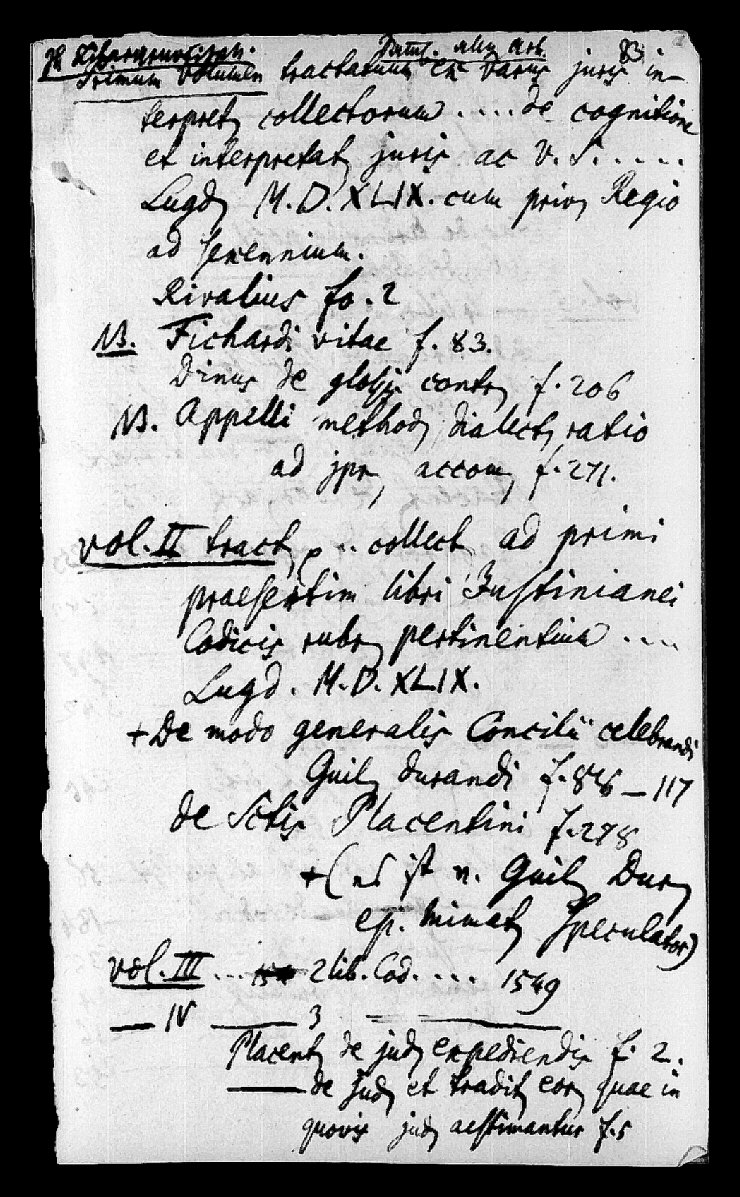 83
Primum volumen tractatuum ex variis juris in-
terpret collectorum .... de cognitione
et interpretat juris ac V. S. .....
Lugd M.D.XLIX. cum priv Regio
ad Serennium.
Rivalius fo. 2
NB. Fichardi vitae f. 83.
Dinus de glossis contr f. 206
NB. Appelli method dialect ratio
ad jpr, accom f. 271.
vol. II tract, e .. collect ad primi
praesertim libri Justinianei
Codicis rubr pertinentium ....
Lugd. M.D.XLIX.
+ De modo generalis Concilii celebrandi
Guil durandi f. 86 — 117
de Sctis Placentini f. 278
+ (es ist n. Guil Dur
ep. Mimat Speculator)
vol. III ... 2 lib. Cod. .... 1549
— IV — 3 — —
Placent de jud expediendis f. 2.
— de jud et tradit eor quae in
quovis jud aestimantur f. 5